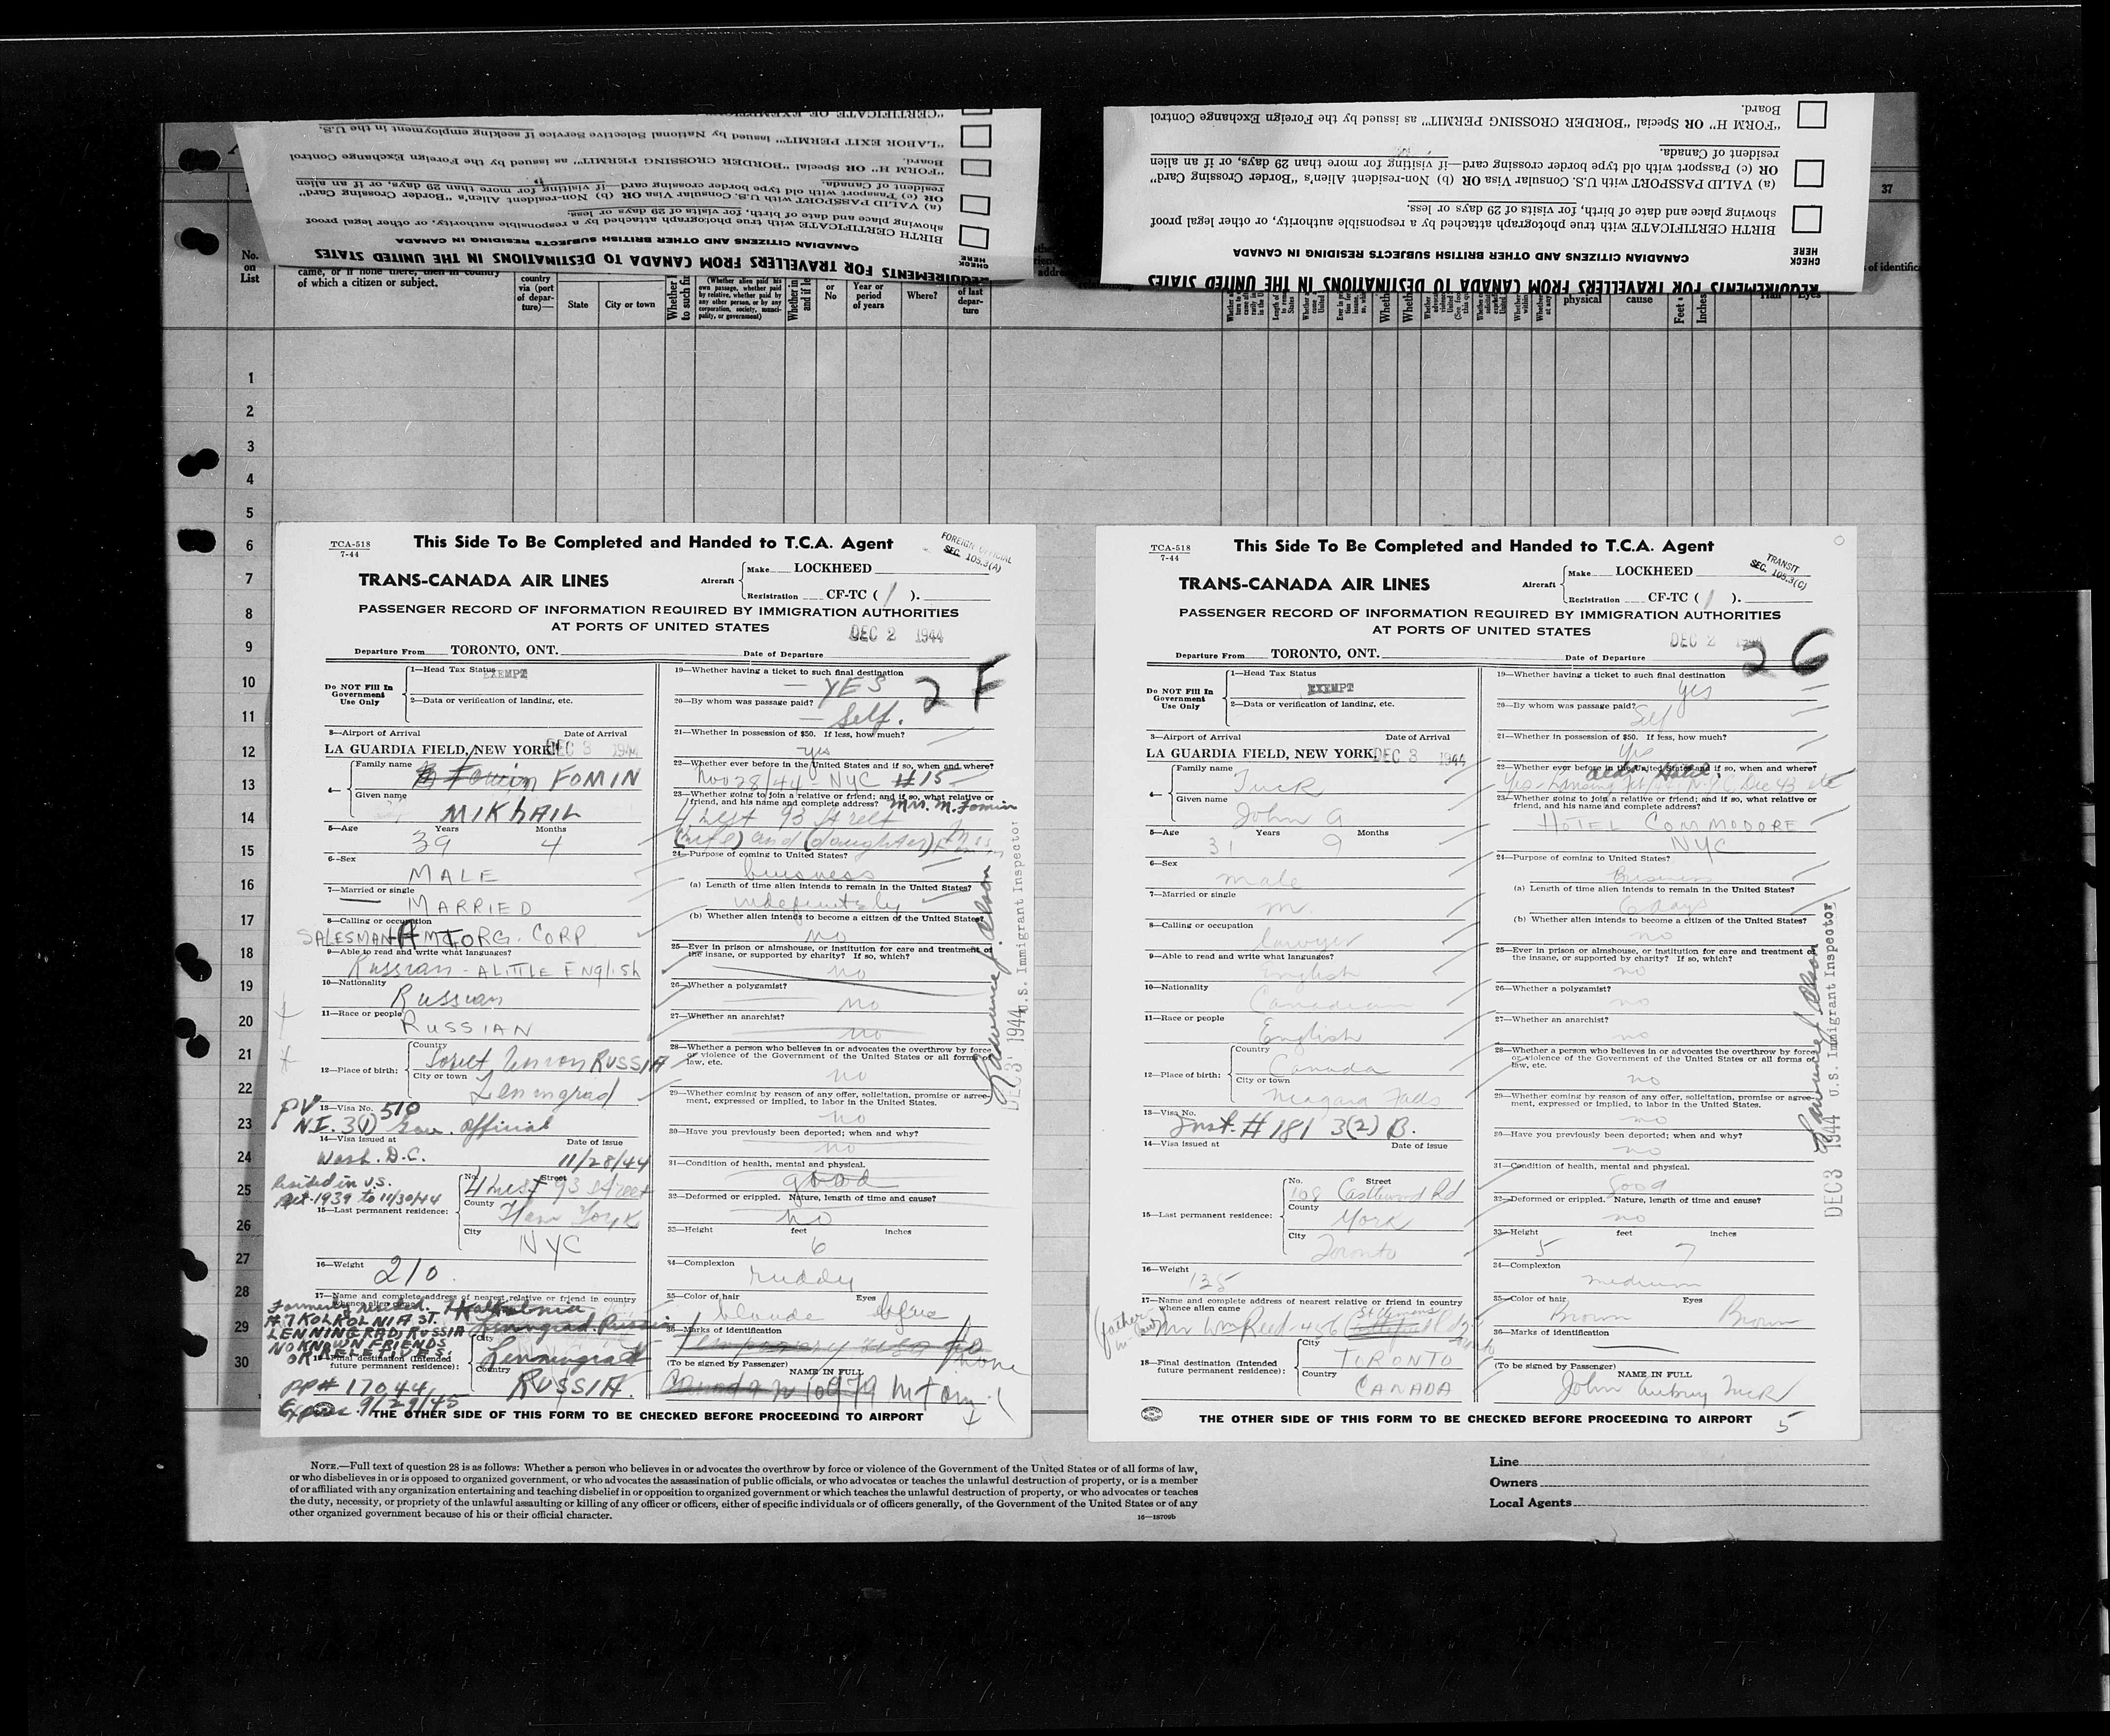 "CERTIFICATE OF EXEMPTION
"LABOR EXIT PERMIT" issued by National Selective Service if seeking employment in the U.S.
"FORM H" OR Special "BORDER CROSSING PERMIT" as issued by the Foreign Exchange Control
Board.
(a) VALID PASSPORT with U.S. Consular Visa OR (b) Non-resident Alien's "Border Crossing Card"
OR (c) Passport with old type border crossing card—if visiting for more than 29 days, or if an alien
resident of Canada.
BIRTH CERTIFICATE with true photograph attached by a responsible authority, or other legal proof
showing place and date of birth, for visits of 29 days or less.
CANADIAN CITIZENS AND OTHER BRITISH SUBJECTS RESIDING IN CANADA
CHECK
HERE
REQUIREMENTS FOR TRAVELLERS FROM CANADA TO DESTINATIONS IN THE UNITED STATES
Board.
"FORM H" OR Special "BORDER CROSSING PERMIT" as issued by the Foreign Exchange Control
resident of Canada.
OR (c) Passport with old type border crossing card—if visiting for more than 29 days, or if an alien
(a) VALID PASSPORT with U.S. Consular Visa OR (b) Non-resident Alien's "Border Crossing Card"
showing place and date of birth, for visits of 29 days or less.
BIRTH CERTIFICATE with true photograph attached by a responsible authority, or other legal proof
CANADIAN CITIZENS AND OTHER BRITISH SUBJECTS RESIDING IN CANADA
CHECK
HERE
REQUIREMENTS FOR TRAVELLERS FROM CANADA TO DESTINATIONS IN THE UNITED STATES
37
No.
on
List
came, or if none there, then in country
of which a citizen or subject.
country
via (port
of depar-
ture)—
State
City or town
(Whether alien paid his
own passage, whether paid
by relative, whether paid by
any other person, or by any
corporation, society, munici-
pality, or government)
or
No
Year or
period
of years
Where?
of last
depar-
ture
physical
cause
Feet
Inches
Hair
Eyes
of identifica
1
2
3
4
5
6
7
8
9
10
11
12
13
14
15
16
17
18
19
20
21
22
23
24
25
26
27
28
29
30
TCA-518
7-44
This Side To Be Completed and Handed to T.C.A. Agent
FOREIGN OFFICIAL
SEC. 105.3(A)
TRANS-CANADA AIR LINES
Aircraft
Make LOCKHEED
Registration CF-TC ( 1 ).
PASSENGER RECORD OF INFORMATION REQUIRED BY IMMIGRATION AUTHORITIES
AT PORTS OF UNITED STATES
DEC 2 1944
Departure From TORONTO, ONT. Date of Departure
Do NOT Fill In
Government
Use Only
1—Head Tax Status
EXEMPT
2—Data or verification of landing, etc.
3—Airport of Arrival Date of Arrival
LA GUARDIA FIELD, NEW YORK DEC 3 1944
4—
Family name
Fomin FOMIN
Given name
MIKhAIL
5—Age Years Months
39 4
6—Sex
MALE
7—Married or single
MARRIED
8—Calling or occupation
SALESMAN AMTORG. CORP
9—Able to read and write what languages?
Russian - A LITTLE ENglISh
10—Nationality
Russian
11—Race or people
RUSSIAN
12—Place of birth:
Country
Soviet Union RUSSIA
City or town
Leningrad
PV
13—Visa No. 510
N.I. 3(1) Gov. Official
14—Visa issued at Date of issue
Wash. D.C. 11/28/44
Resided in U.S.
Oct-1939 to 11/30/44
15—Last permanent residence:
No. Street
4 West 93 Street
County
New York
City
NYC
16—Weight
210
17—Name and complete address of nearest relative or friend in country
whence alien came
Formerly resided.
# 7 KOLKOLNIA ST.
LENNINGRAD, RUSSIA
NO KNOWN FRIENDS
OR RELETIVES.
Leningrad Russia
18—Final destination (Intended
future permanent residence):
City
Lenningrad
Country
RUSSIA.
PP# 17044
Expires 9/29/45
19—Whether having a ticket to such final destination
YES
2 F
20—By whom was passage paid?
Self.
21—Whether in possession of $50. If less, how much?
yes
22—Whether ever before in the United States and if so, when and where?
Nov 28/44 NYC #15
23—Whether going to join a relative or friend; and if so, what relative or
friend, and his name and complete address? Mrs. M. Fomin
4 West 93 Street
(wife) and (daughter)
24—Purpose of coming to United States?
buisness
(a) Length of time alien intends to remain in the United States?
indefinitely
(b) Whether alien intends to become a citizen of the United States?
no
25—Ever in prison or almshouse, or institution for care and treatment of
the insane, or supported by charity? If so, which?
no
26—Whether a polygamist?
no
27—Whether an anarchist?
no
28—Whether a person who believes in or advocates the overthrow by force
or violence of the Government of the United States or all forms of
law, etc.
no
29—Whether coming by reason of any offer, solicitation, promise or agree-
ment, expressed or implied, to labor in the United States.
no
30—Have you previously been deported; when and why?
no
31—Condition of health, mental and physical.
good
32—Deformed or crippled. Nature, length of time and cause?
no
33—Height feet inches
6
34—Complexion
ruddy
35—Color of hair Eyes
blonde
36—Marks of identification
none
(To be signed by Passenger)
NAME IN FULL
THE OTHER SIDE OF THIS FORM TO BE CHECKED BEFORE PROCEEDING TO AIRPORT
Lawrence J. Olson
DEC 3 1944 U.S. Immigrant Inspector
TCA-518
7-44
This Side To Be Completed and Handed to T.C.A. Agent
TRANSIT
SEC. 105.3(C)
TRANS-CANADA AIR LINES
Aircraft
Make LOCKHEED
Registration CF-TC ( 1 ).
PASSENGER RECORD OF INFORMATION REQUIRED BY IMMIGRATION AUTHORITIES
AT PORTS OF UNITED STATES
DEC 2 1944
Departure From TORONTO, ONT. Date of Departure
26
Do NOT Fill In
Government
Use Only
1—Head Tax Status
EXEMPT
2—Data or verification of landing, etc.
3—Airport of Arrival Date of Arrival
LA GUARDIA FIELD, NEW YORK DEC 3 1944
4—
Family name
Tuck
Given name
John A
5—Age Years Months
31 9
6—Sex
male
7—Married or single
m.
8—Calling or occupation
lawyer
9—Able to read and write what languages?
English
10—Nationality
Canadian
11—Race or people
English
12—Place of birth:
Country
Canada
City or town
Niagara Falls
13—Visa No.
Inst. # 181 3(2) B.
14—Visa issued at Date of issue
15—Last permanent residence:
No. Street
108 Castlewood Rd
County
York
City
Toronto
16—Weight
135
17—Name and complete address of nearest relative or friend in country
whence alien came
(father-in-law) Mr Wm Reed - 456 St Clemens
18—Final destination (Intended
future permanent residence):
City
TORONTO
Country
CANADA
19—Whether having a ticket to such final destination
yes
20—By whom was passage paid?
Self
21—Whether in possession of $50. If less, how much?
Yes
22—Whether ever before in the United States and if so, when and where?
23—Whether going to join a relative or friend; and if so, what relative or
friend, and his name and complete address?
HOTEL COMMODORE
NYC
24—Purpose of coming to United States?
Business
(a) Length of time alien intends to remain in the United States?
6 days
(b) Whether alien intends to become a citizen of the United States?
no
25—Ever in prison or almshouse, or institution for care and treatment of
the insane, or supported by charity? If so, which?
no
26—Whether a polygamist?
no
27—Whether an anarchist?
no
28—Whether a person who believes in or advocates the overthrow by force
or violence of the Government of the United States or all forms of
law, etc.
no
29—Whether coming by reason of any offer, solicitation, promise or agree-
ment, expressed or implied, to labor in the United States.
no
30—Have you previously been deported; when and why?
no
31—Condition of health, mental and physical.
Good
32—Deformed or crippled. Nature, length of time and cause?
no
33—Height feet inches
5 7
34—Complexion
medium
35—Color of hair Eyes
Brown Brown
36—Marks of identification
(To be signed by Passenger)
NAME IN FULL
John Aubrey Tuck
THE OTHER SIDE OF THIS FORM TO BE CHECKED BEFORE PROCEEDING TO AIRPORT
5
Lawrence J. Olson
DEC 3 1944 U.S. Immigrant Inspector
NOTE.—Full text of question 28 is as follows: Whether a person who believes in or advocates the overthrow by force or violence of the Government of the United States or of all forms of law,
or who disbelieves in or is opposed to organized government, or who advocates the assassination of public officials, or who advocates or teaches the unlawful destruction of property, or is a member
of or affiliated with any organization entertaining and teaching disbelief in or opposition to organized government or which teaches the unlawful destruction of property, or who advocates or teaches
the duty, necessity, or propriety of the unlawful assaulting or killing of any officer or officers, either of specific individuals or of officers generally, of the Government of the United States or of any
other organized government because of his or their official character.
16—18709b
Line
Owners
Local Agents